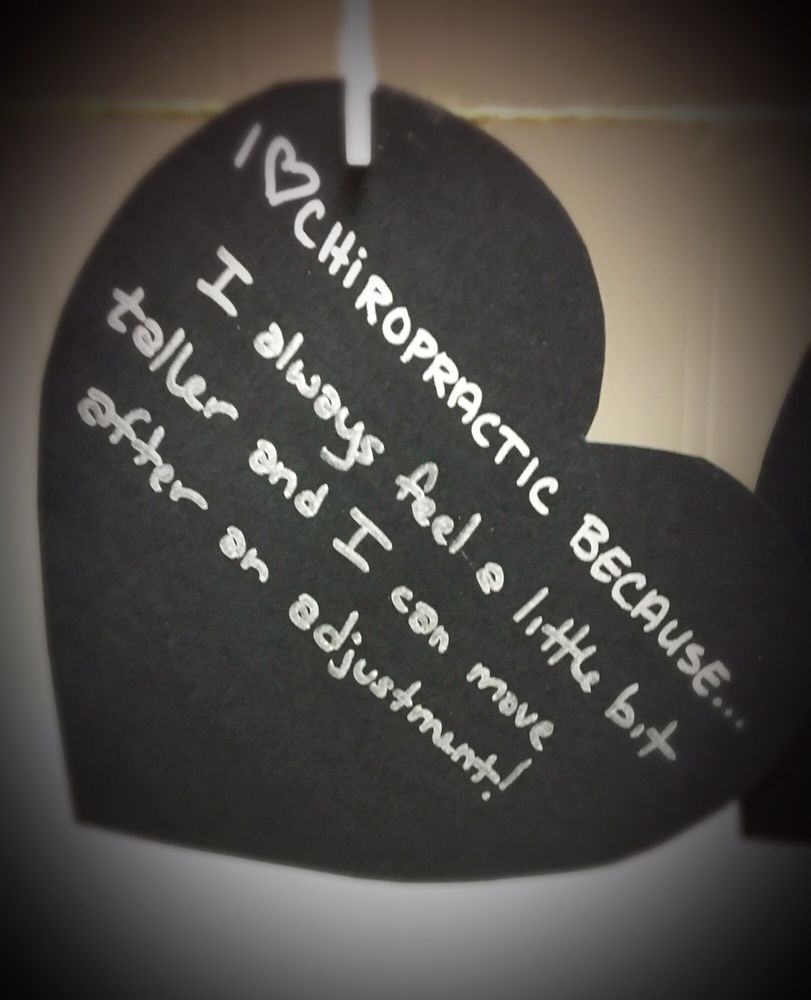 I ♡ CHIROPRACTIC BECAUSE...
I always feel a little bit
taller and I can move
after an adjustment!